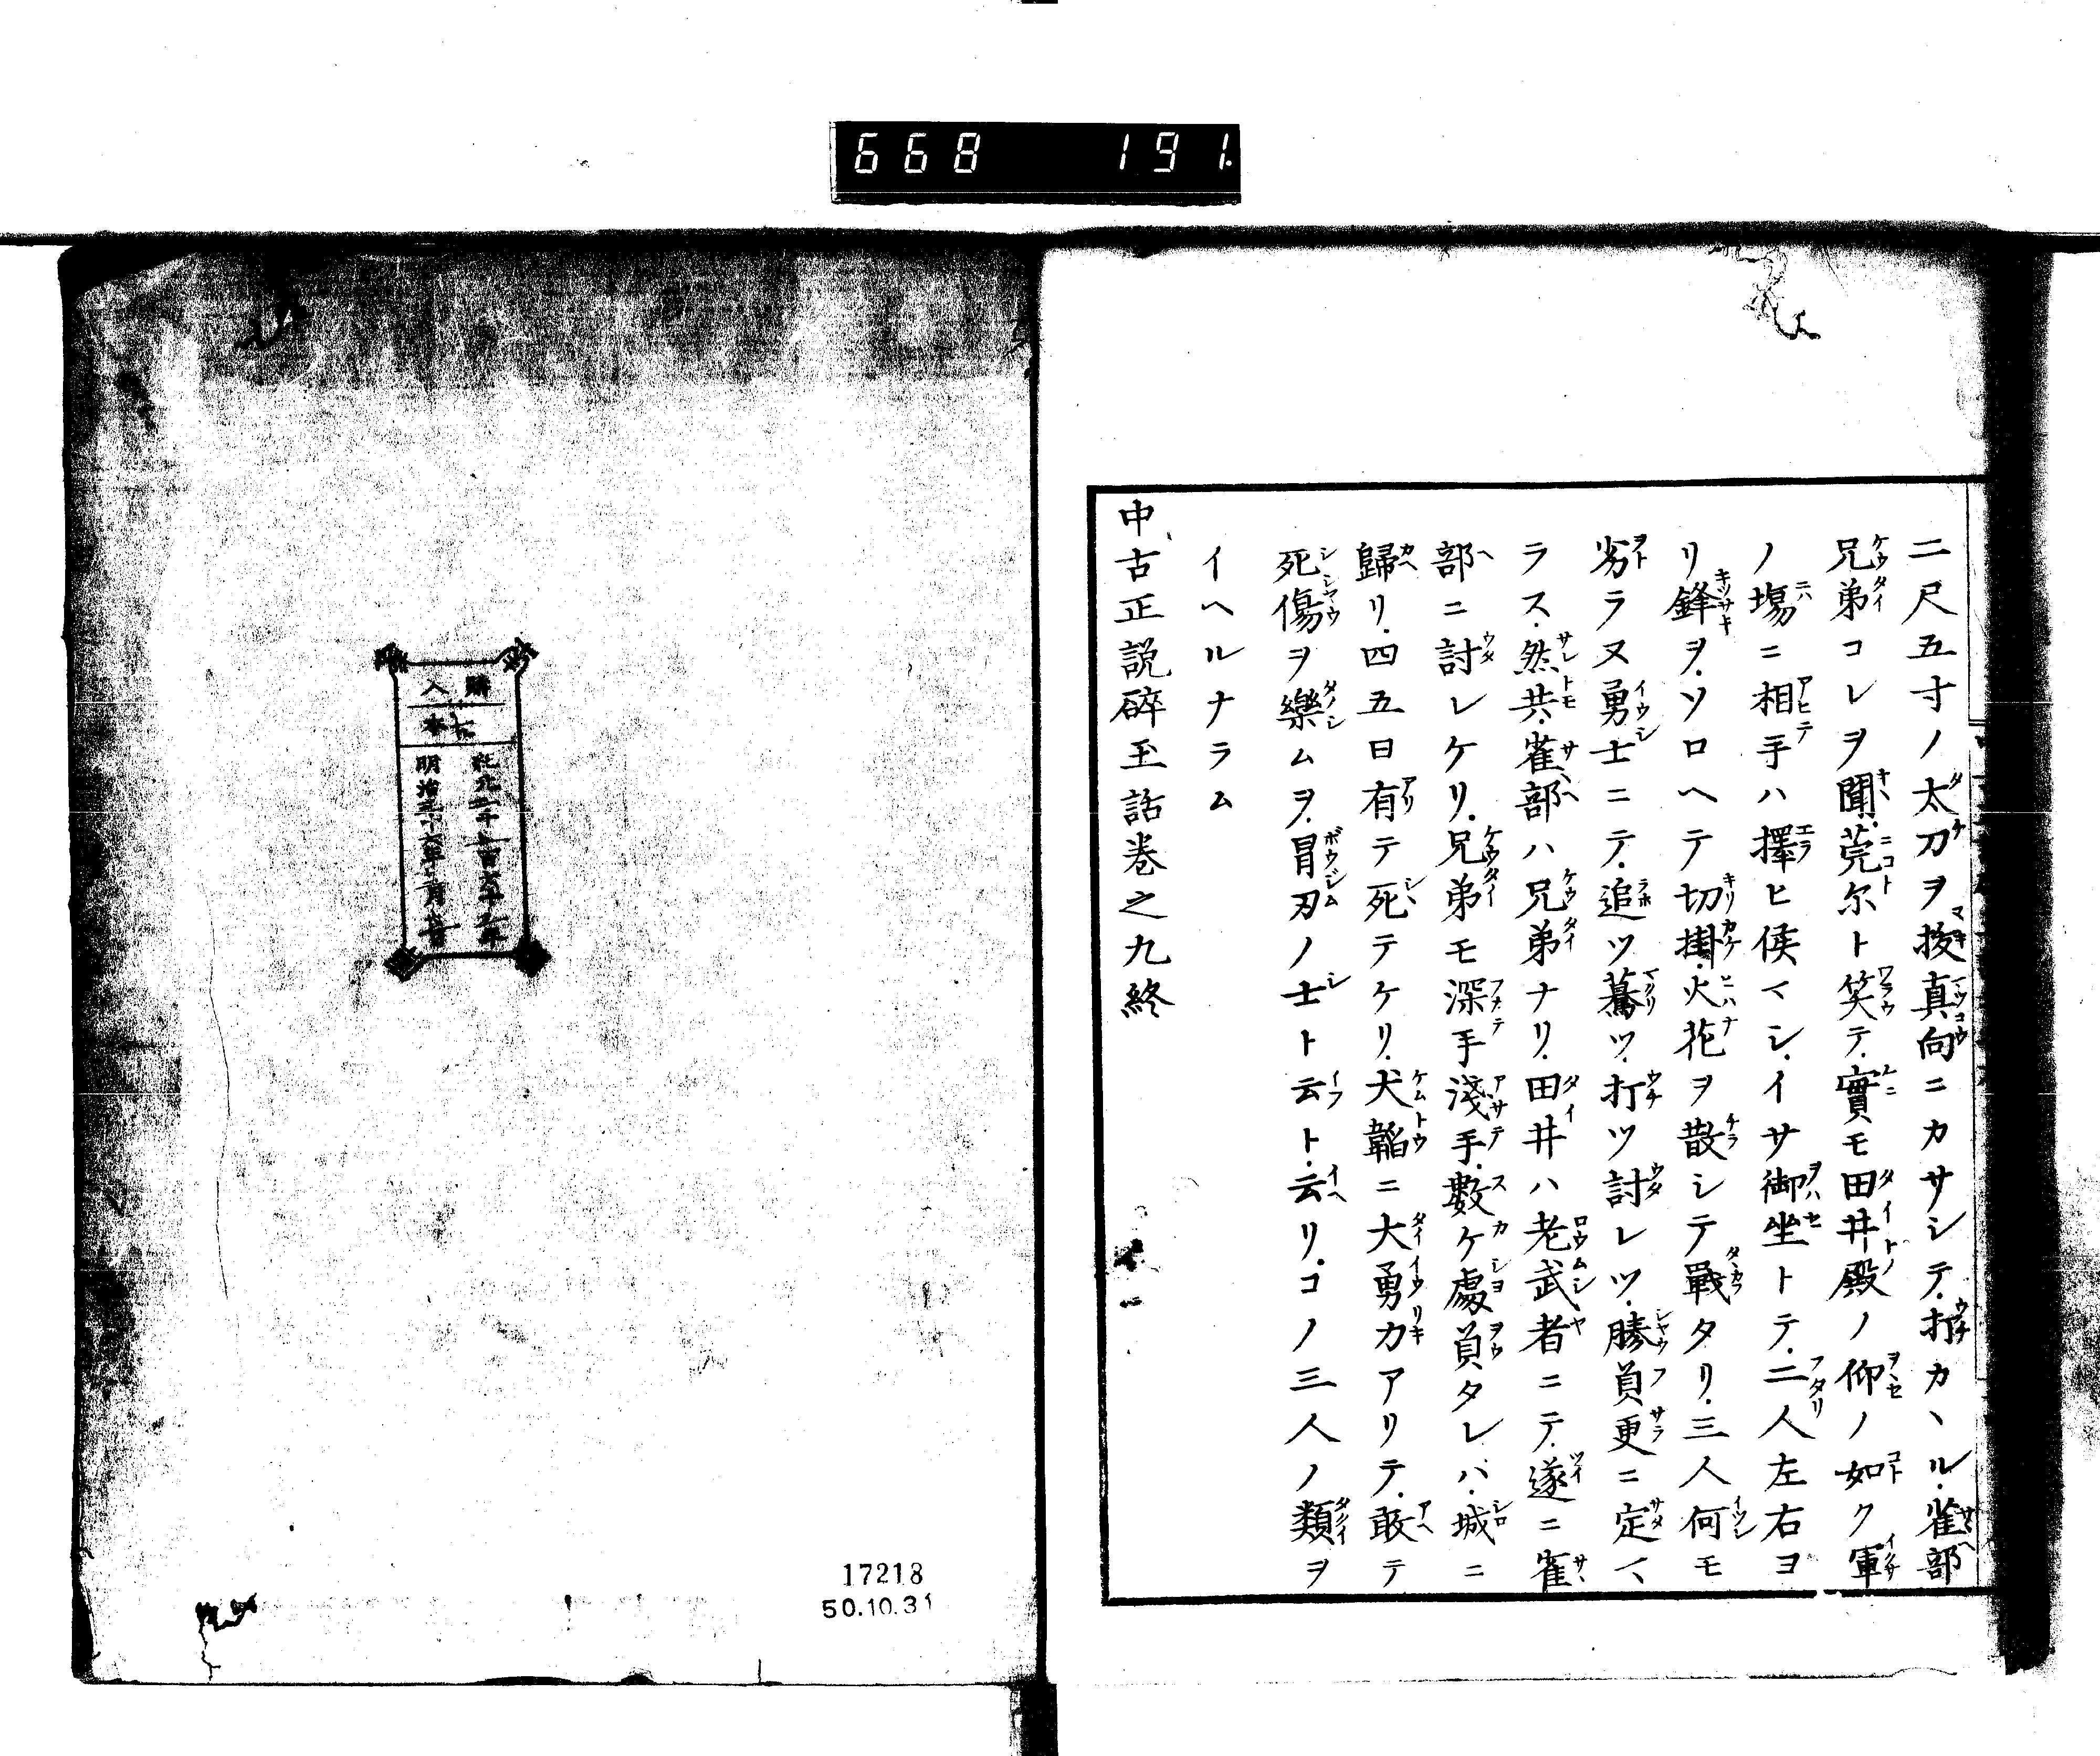 668 191.
二尺五寸ノ太刀ヲ抜真向ニカサシテ.打カヽル.雀部
兄弟コレヲ聞.莞尓ト笑テ.實モ田井殿ノ仰ノ如ク軍
ノ塲ニ相手ハ擇ヒ侯マシ.イサ御坐トテ.二人左右ヨ
リ鋒ヲ.ソロヘテ切掛.火花ヲ散シテ戰タリ.三人何モ
劣ラヌ勇士ニテ.追ツ驀ツ.打ツ討レツ.勝負更ニ定マ
ラス.然共.雀部ハ兄弟ナリ.田井ハ老武者ニテ.遂ニ雀
部ニ討レケリ.兄弟モ深手淺手.數ケ處負タレバ.城ニ
歸リ.四五日有テ死テケリ.犬韜ニ大勇力アリテ.敢テ
死傷ヲ樂ムヲ.冒刃ノ士ト云ト.云リ.コノ三人ノ類ヲ
イヘルナラム
中古正説碎玉話巻之九終
購入
明治三十六年
17218
50.10.31